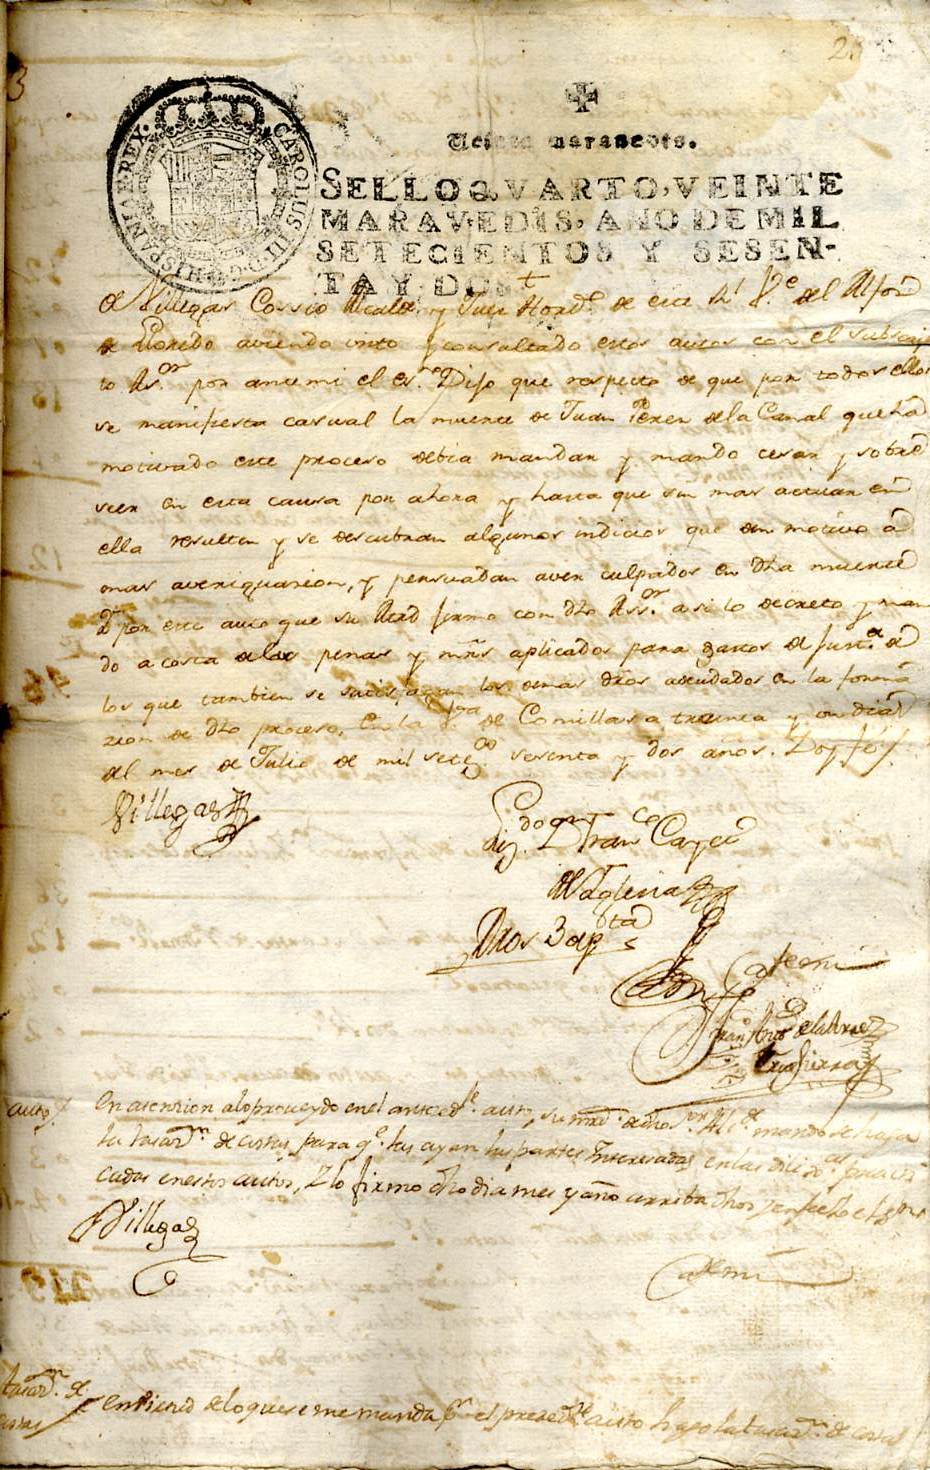 3
CAROLUS III D G HISPANIAR REX
Veinte maravedis.
SELLO QVARTO, VEINTE
MARAVEDIS, AÑO DE MIL
SETECIENTOS Y SESEN-
TA Y DOS
de Villegas Cossio Alcalde y Juez Hord.º de este Rl V.e del Alfoz
de Lloredo aviendo visto y consultado estos autos con el subscrip
to As.or por ante mi el es.no Dijo que respecto de que por todos ellos
se manifiesta casual la muerte de Juan Perez de la Canal que ha
motivado este proceso debia mandar y mando cesar y sobre
seer en esta causa por ahora y hasta que sin mas actuar en
ella resulten y se descubran algunos indicios que den motivo a
mas averiguacion, y persuadan aver culpados en dha muerte
por este auto que su Mrd firmo con dho Ass.or asi lo decreto y man
do a costa de las penas y mrs aplicados para gastos de Just.a de
los que tambien se satisfagan los demas dros adeudados en la forma
zion de dho proceso, En la V.a de Comillas a treinta y un dias
del mes de Julio de mil setez.os sesenta y dos años. Doy fé
Villegas
Liz.do Dn Fran.co Cayet.
de la Yglesia
Dros 3
Ante mi
Fran.co de la
auto
En atenzion a lo proveydo en el anteced.te auto, su mrd. dicho s.or Al.e mando se haga
la tasaz.on de costas, para q.e las ayan las partes Interesadas en las dilix.as practi
cadas en estos autos, Y lo firmo dho dia mes y año arriba dhos y en fe de ello
Villegas
Ante mi
tasaz.on de
costas
en virtud de lo que se me manda p.r el preced.te auto hago la tasaz.on de costas